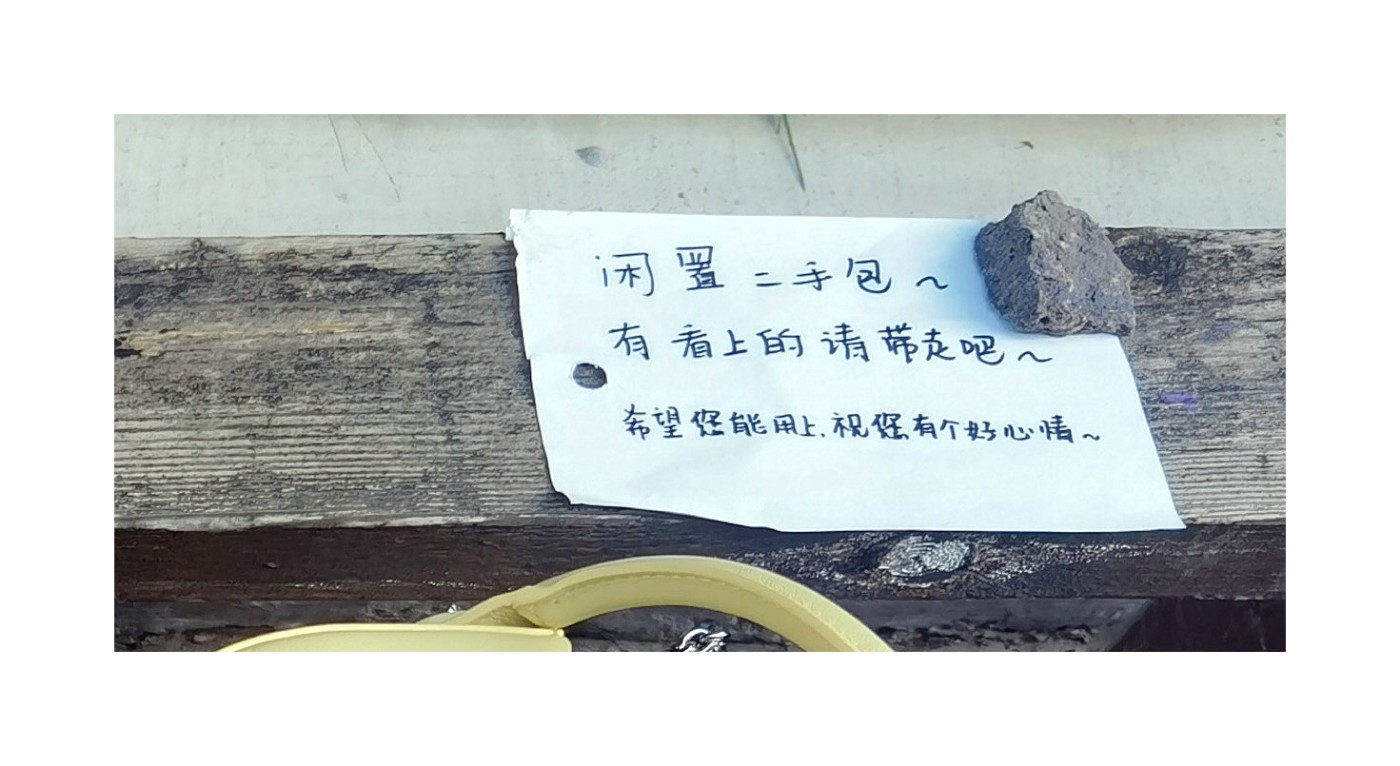 闲置二手包~
有看上的请带走吧~
希望您能用上、祝您有个好心情~